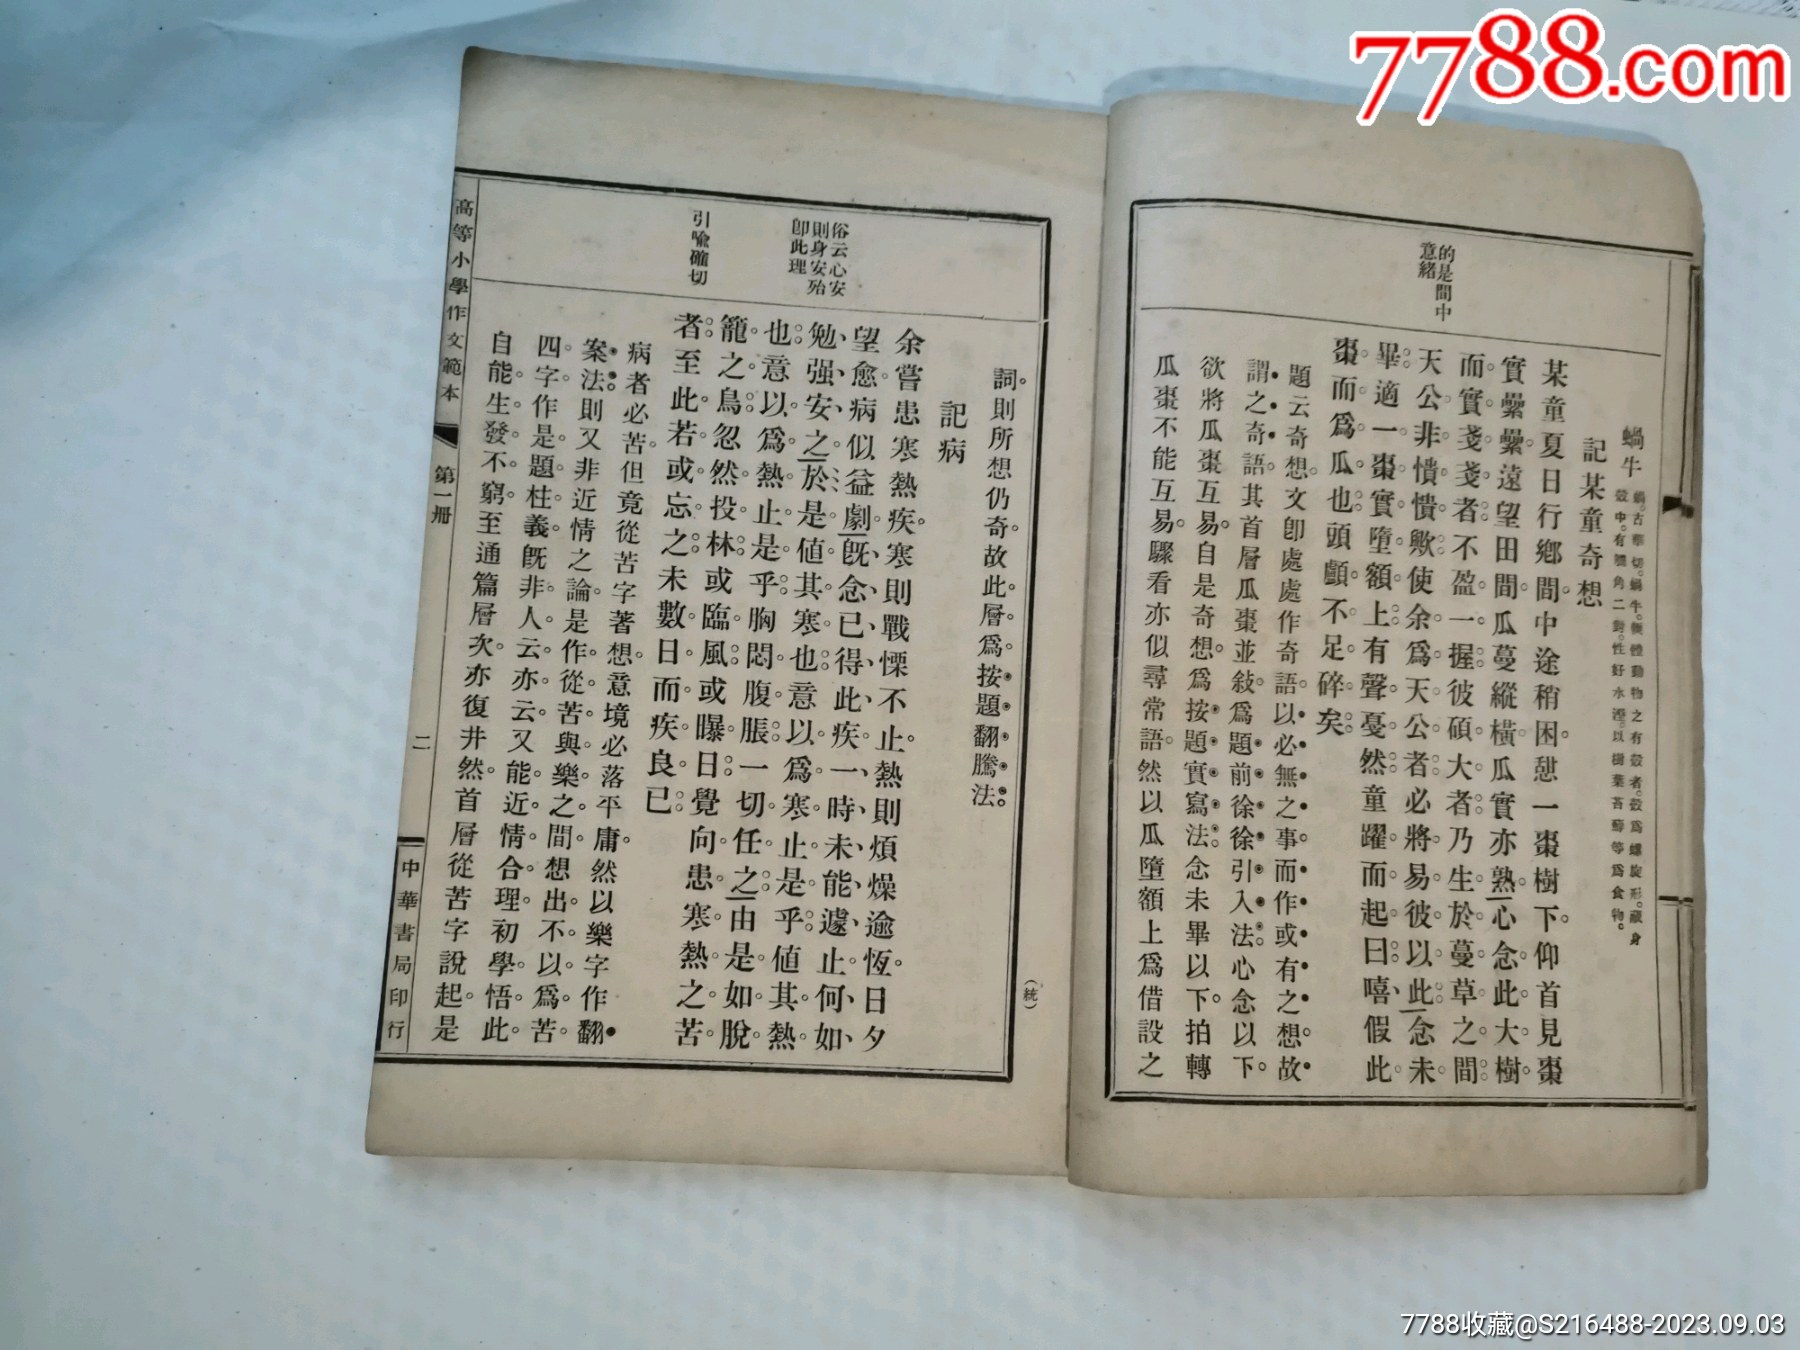 7788.com
的是間中
意緒
蝸牛
蝸。古華切。蝸牛。輭體動物之有殼者。殼爲螺旋形。藏身
殼中。有觸角二對。性好水溼。以樹葉苔蘚等爲食物。
記某童奇想
某童夏日行鄉間。中途稍困。憩一棗樹下。仰首見棗
實纍纍。遠望田間。瓜蔓縱橫。瓜實亦熟。心念此大樹。
而實戔戔者。不盈一握。彼碩大者。乃生於蔓草之間。
天公非憒憒歟。使余爲天公者。必將易彼以此。念未
畢。適一棗實墮額上。有聲戛然。童躍而起曰。嘻、假此
棗而爲瓜也。頭顱不足碎矣。
題云奇想。文卽處處作奇語。以必無之事。而作或有之想。故
謂之奇語。其首層瓜棗並敍。爲題前徐徐引入法。心念以下。
欲將瓜棗互易。自是奇想。爲按題實寫法。念未畢以下。拍轉
瓜棗不能互易。驟看亦似尋常語。然以瓜墮額上爲借設之
詞。則所想仍奇。故此層爲按題翻騰法。
（統）
俗云心安
則身安殆
卽此理
引喩確切
記病
余嘗患寒熱疾。寒則戰慄不止。熱則煩燥逾恆。日夕
望愈。病似益劇。旣念已得此疾、一時未能遽止、何如
勉强安之、於是値其寒也。意以爲寒止是乎。値其熱
也。意以爲熱止是乎。胸悶腹脹。一切任之。由是如脫
籠之鳥。忽然投林。或臨風。或曝日。覺向患寒熱之苦
者。至此若或忘之。未數日而疾良已。
病者必苦。但竟從苦字著想。意境必落平庸。然以樂字作翻
案法。則又非近情之論。是作從苦與樂之間。想出不以爲苦
四字作是題柱義。旣非人云亦云。又能近情合理。初學悟此。
自能生發不窮。至通篇層次。亦復井然。首層從苦字說起。是
高等小學作文範本
第一冊
二
中華書局印行
7788收藏@S216488-2023.09.03